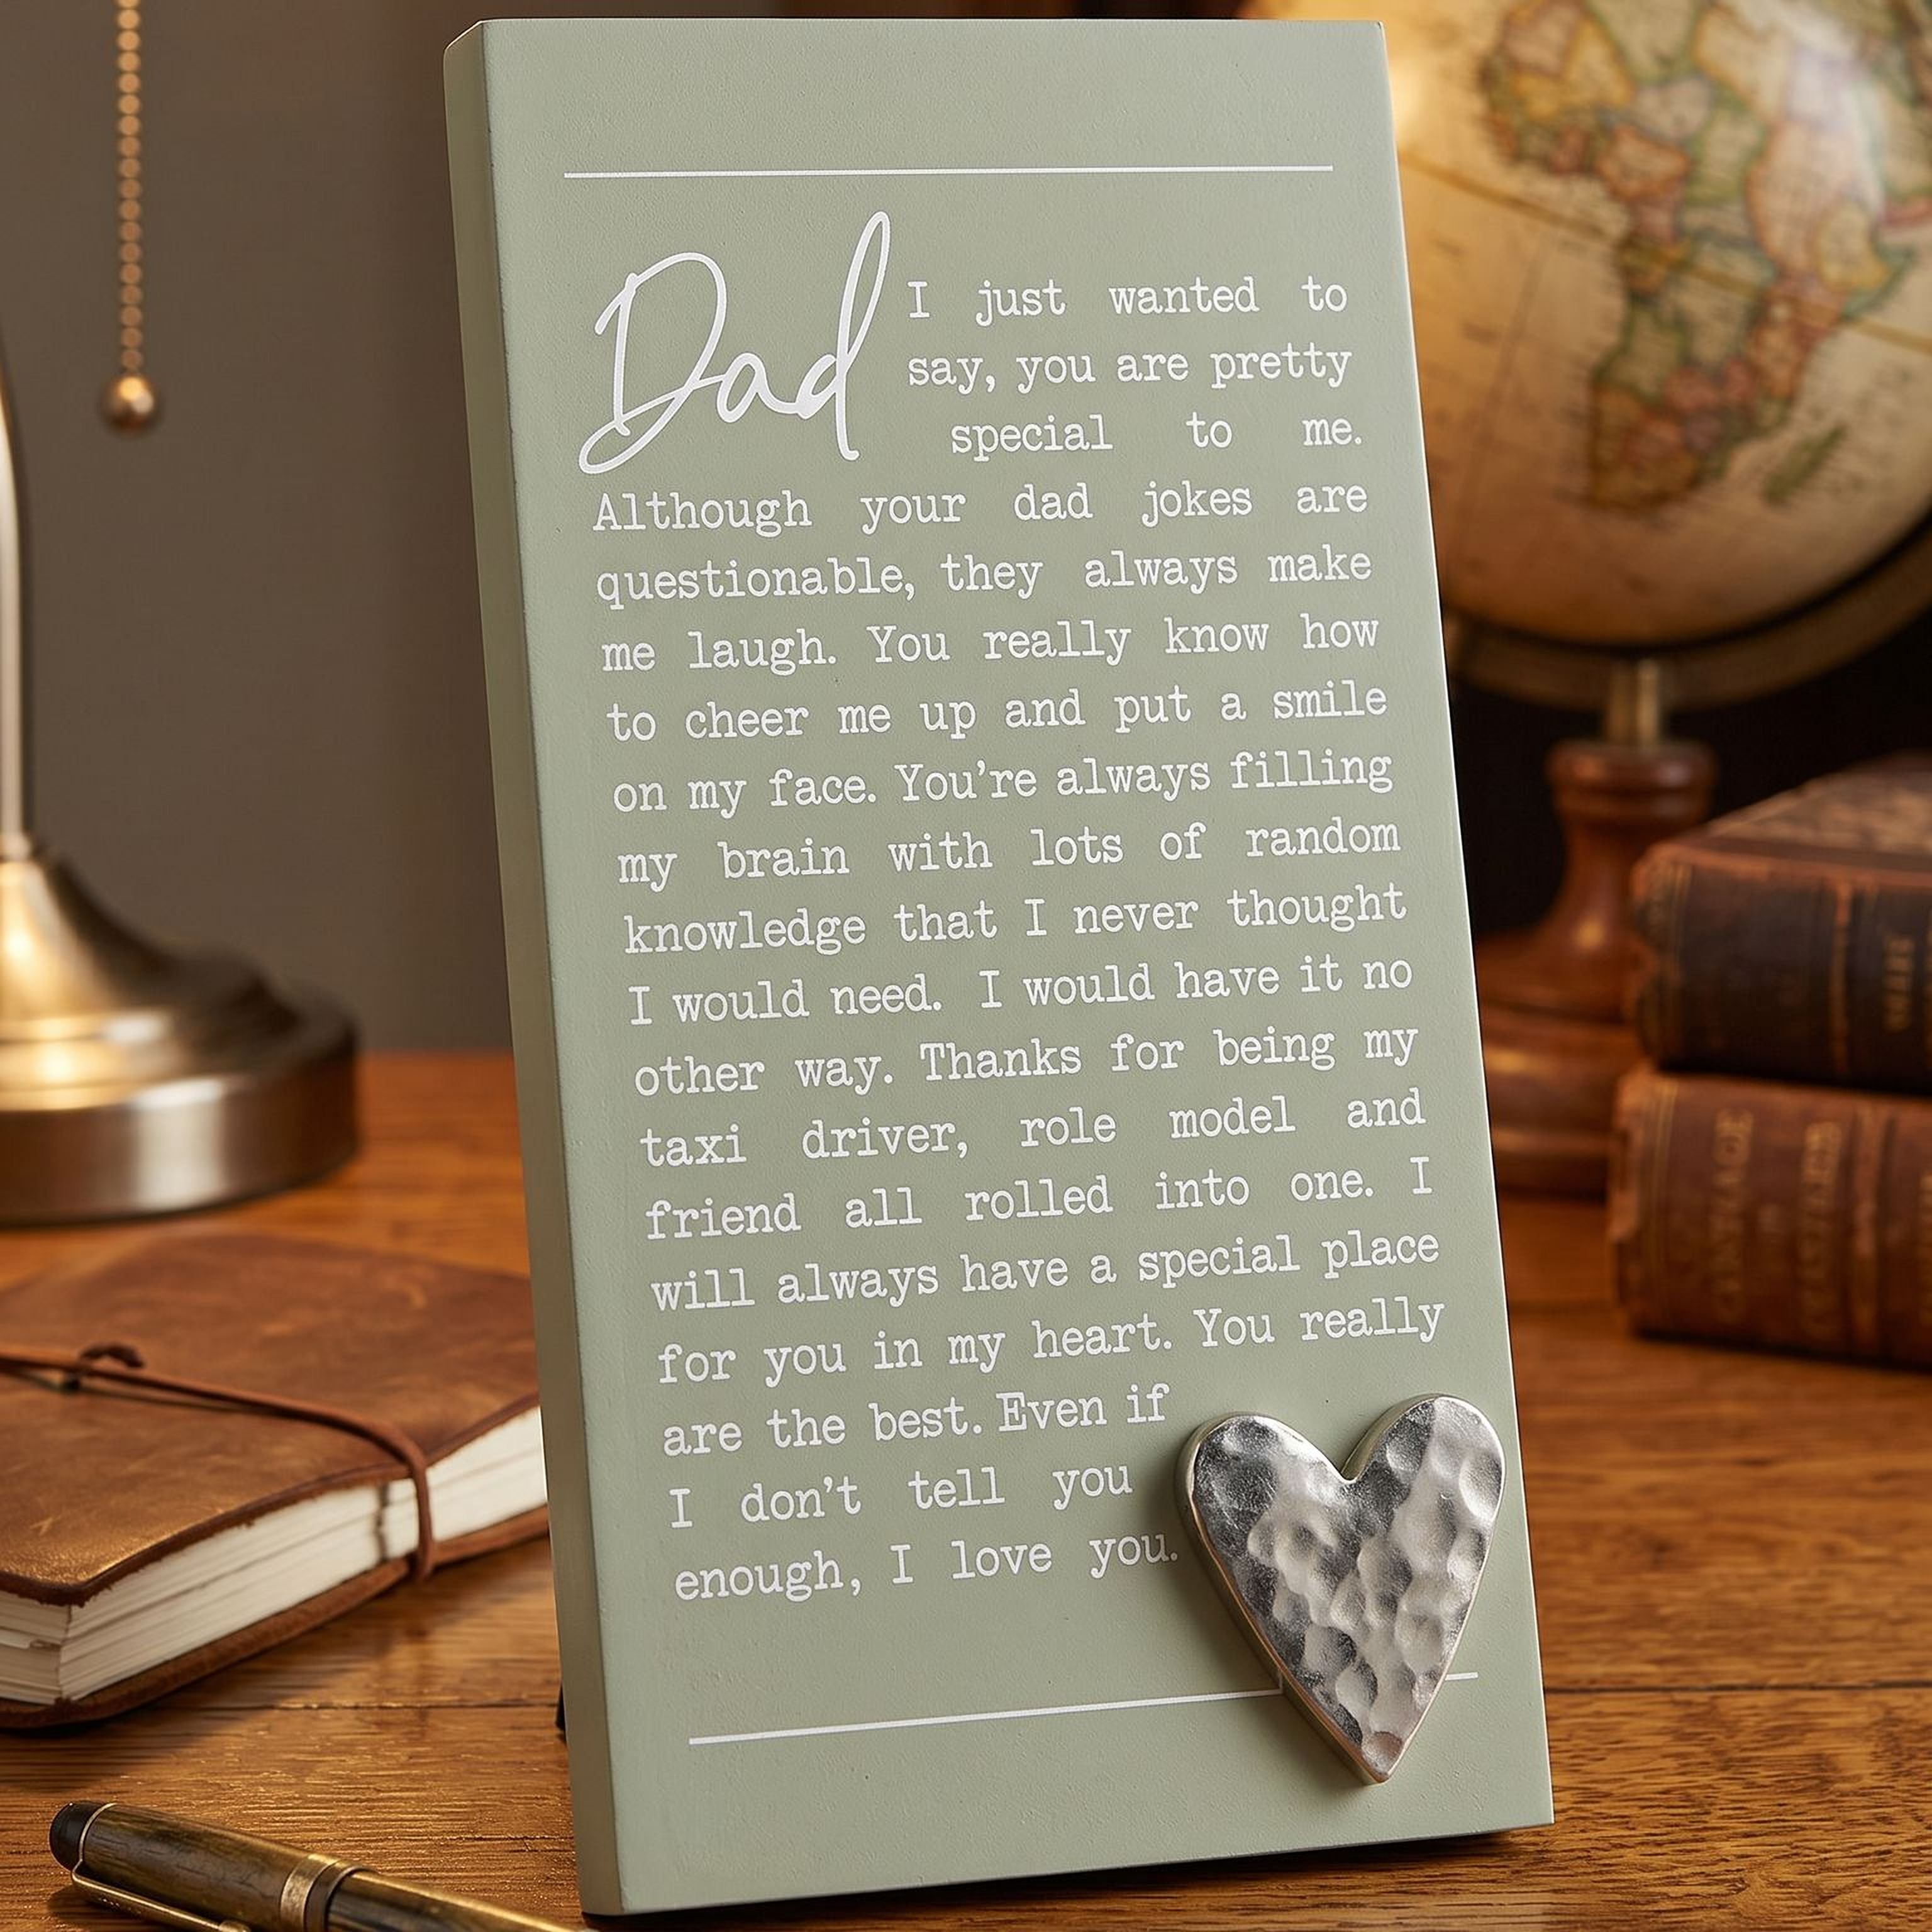 Dad
I just wanted to
say, you are pretty
special to me.
Although your dad jokes are
questionable, they always make
me laugh. You really know how
to cheer me up and put a smile
on my face. You're always filling
my brain with lots of random
knowledge that I never thought
I would need. I would have it no
other way. Thanks for being my
taxi driver, role model and
friend all rolled into one. I
will always have a special place
for you in my heart. You really
are the best. Even if
I don't tell you
enough, I love you.